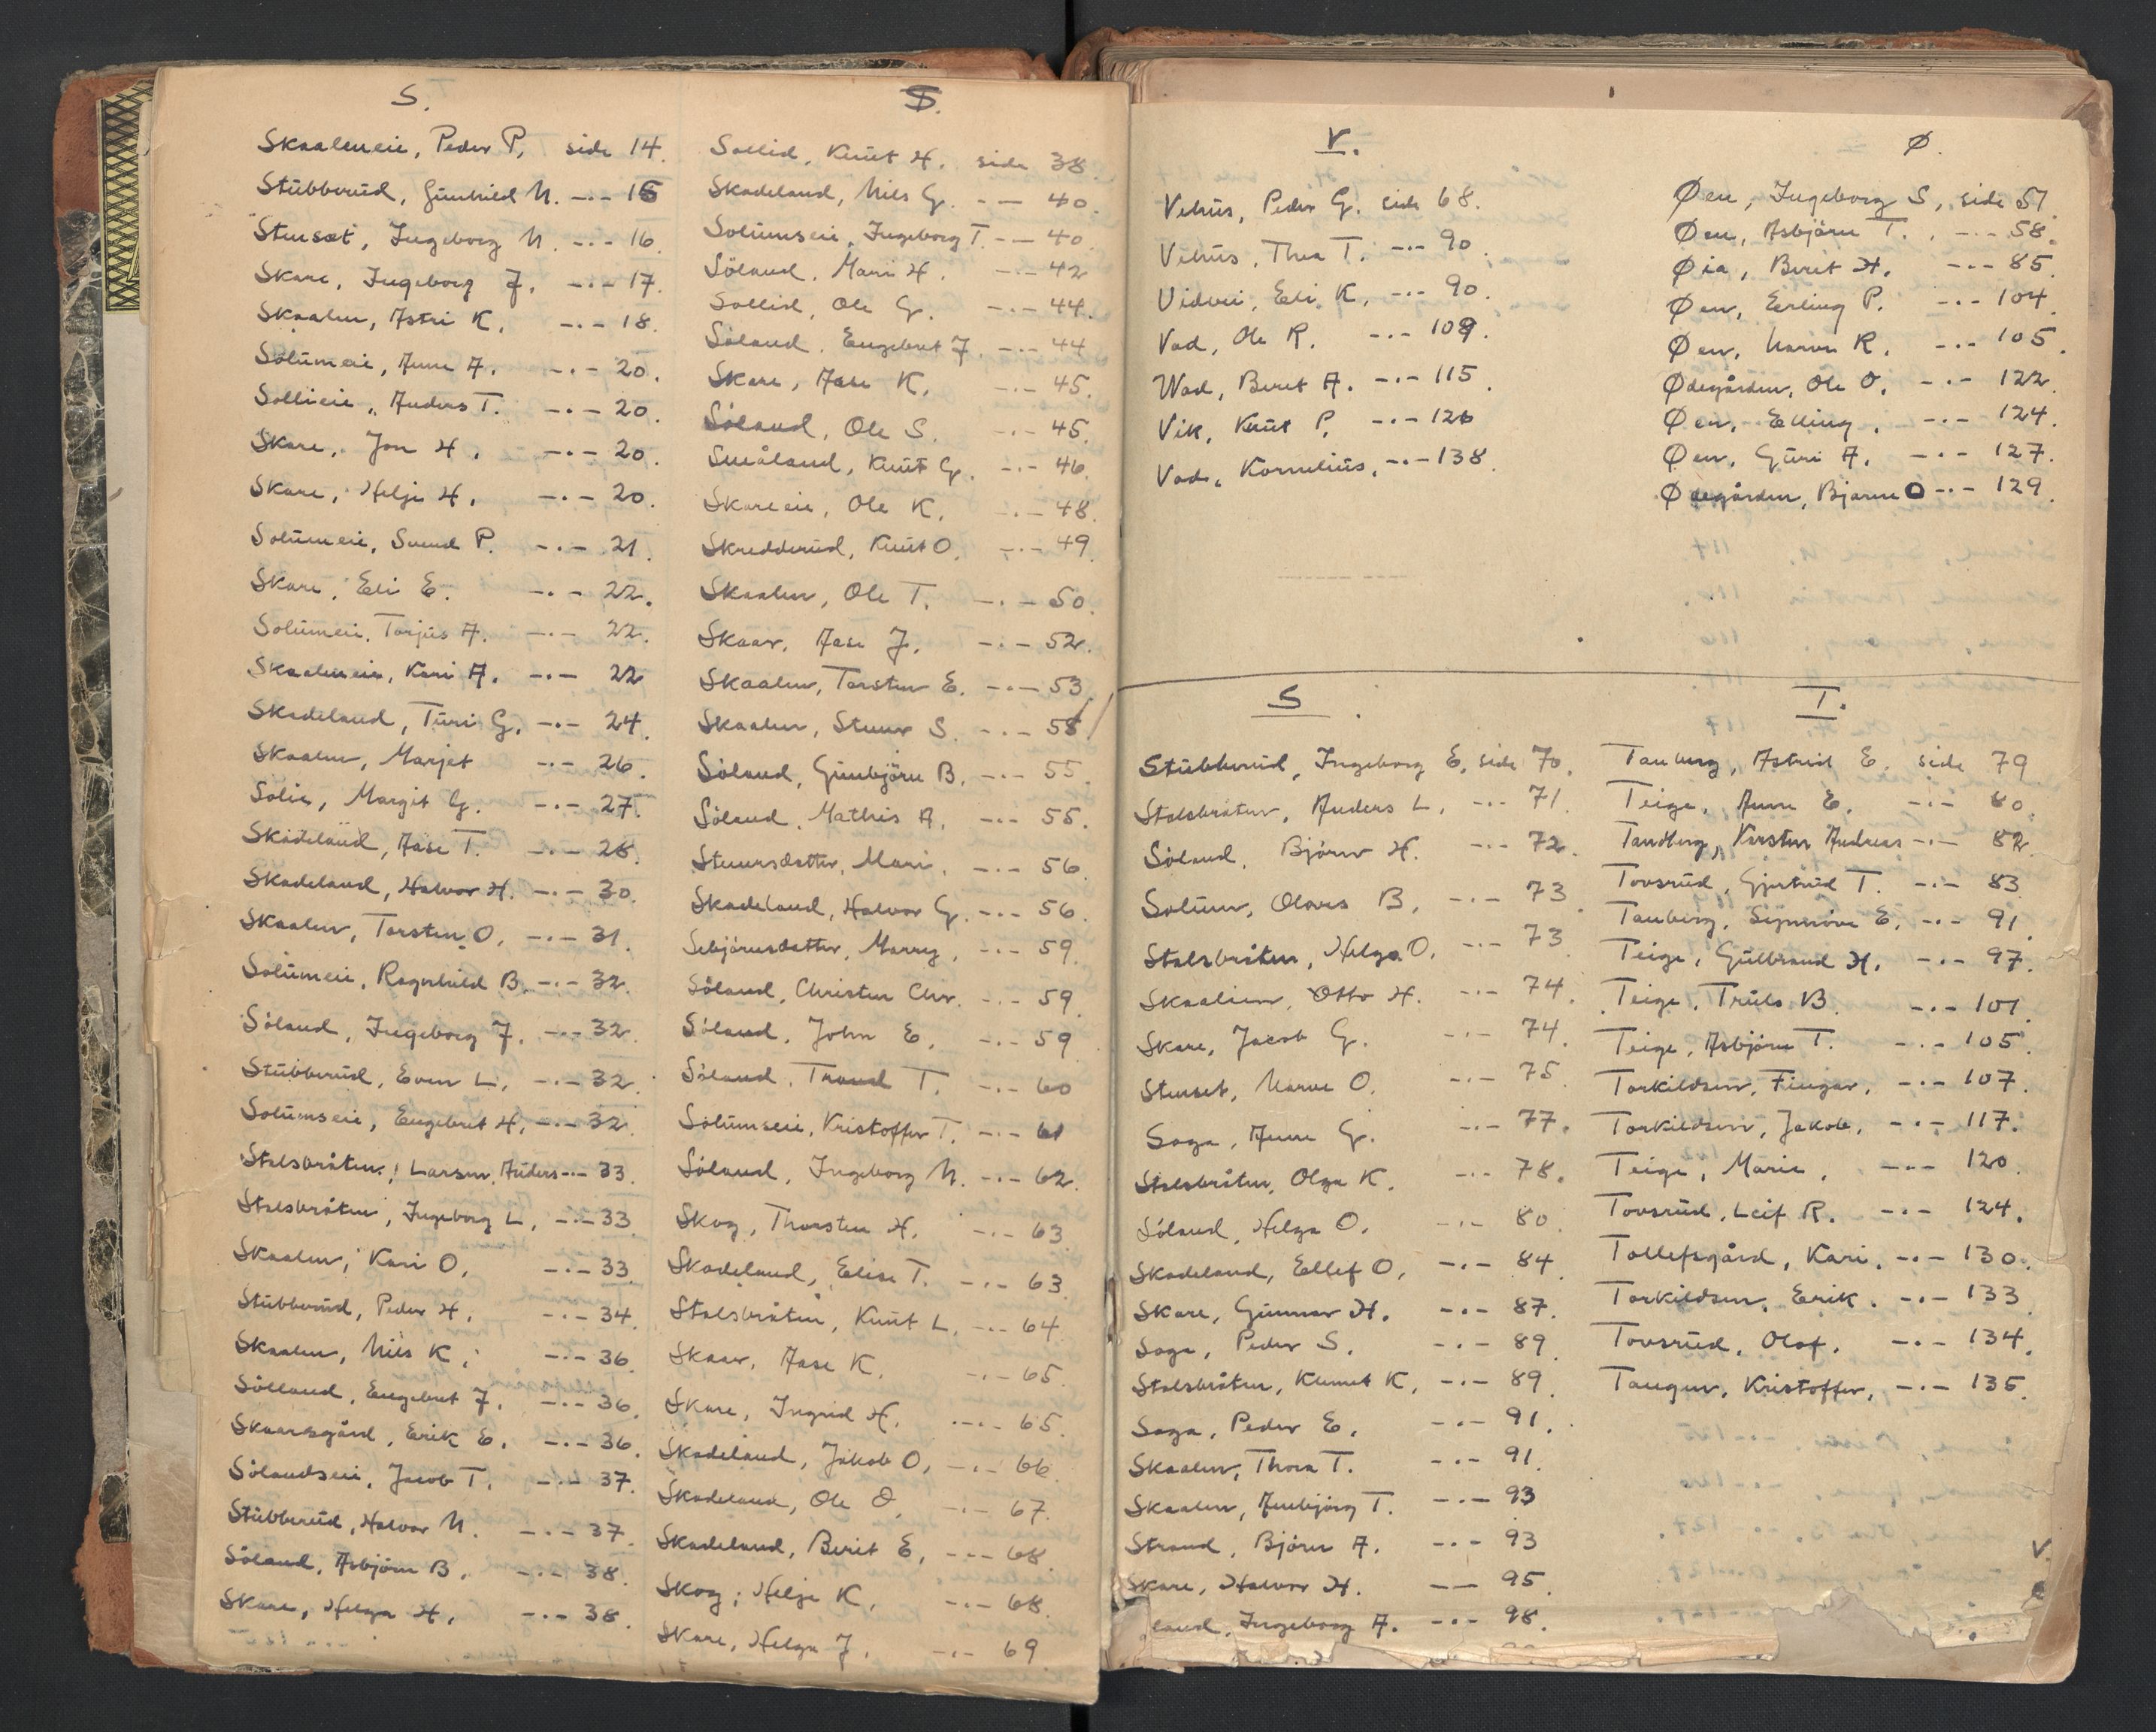 S.
Skaaleneie, Peder P, side 14.
Stübberüd, Günhild N. -.- 15
Stensæt, Ingeborg N. -.- 16.
Skare, Ingeborg J. -.- 17.
Skaalen, Astri K. -.- 18.
Solümeie, Anne A. -.- 20.
Sollieie, Anders T. -.- 20.
Skare, Jon H. -.- 20.
Skare, Helje H. -.- 20.
Solümeie, Svend P. -.- 21.
Skare, Eli E. -.- 22.
Solümeie, Torjüs A. -.- 22.
Skaaleneie, Kari A. -.- 22
Skadeland, Türi G. -.- 24.
Skaalen, Marjet -.- 26.
Solie, Margit G. -.- 27.
Skadeland, Aase T. -.- 28.
Skadeland, Halvor H. -.- 30.
Skaalen, Torsten O. -.- 31.
Solümeie, Ragnhild B. -.- 32.
Söland, Ingeborg J. -.- 32.
Stübberüd, Even L. -.- 32.
Solümseie, Engebret H. -.- 32.
Stalsbråten, Larsen, Anders -.- 33.
Stalsbråten, Ingeborg L. -.- 33.
Skaalen, Kari O. -.- 33.
Stübberüd, Peder H. -.- 34.
Skaalen, Nils K. -.- 36.
Sölland, Engebret J. -.- 36.
Skaarsgård, Erik E. -.- 36.
Sölandseie, Jacob T. -.- 37.
Stübberüd, Halvor N. -.- 37.
Söland, Asbjörn B. -.- 38.
Skare, Helga H. -.- 38.
S.
Sollid, Knüt H. side 38.
Skadeland, Nils G. -.- 40.
Solümseie, Ingeborg T. -.- 40.
Söland, Mari H. -.- 42
Sollid, Ole G. -.- 44.
Söland, Engebret J. -.- 44
Skare, Aase K. -.- 45.
Söland, Ole S. -.- 45.
Småland, Knüt G. -.- 46.
Skareeie, Ole K. -.- 48.
Skredderüd, Knüt O. -.- 49.
Skaalen, Ole T. -.- 50.
Skaar, Aase J. -.- 52.
Skaalen, Torsten E. -.- 53.
Skaalen, Stener S. -.- 58
Söland, Günbjörn B. -.- 55.
Söland, Mathis A. -.- 55.
Stenersdatter, Mari, -.- 56.
Skadeland, Halvor G. -.- 56.
Sebjörnsdatter, Marry, -.- 59.
Söland, Christen Chr. -.- 59.
Söland, John E. -.- 59
Söland, Trond T. -.- 60
Solümseie, Kristoffer T. -.- 61
Söland, Ingeborg N. -.- 62.
Skog, Thorsten H. -.- 63
Skadeland, Elise T. -.- 63.
Stalsbråten, Knüt L. -.- 64.
Skaar, Aase K. -.- 65.
Skare, Ingrid H. -.- 65.
Skadeland, Jakob O. -.- 66.
Skadeland, Ole O. -.- 67.
Skadeland, Berit E. -.- 68.
Skog, Helje K. -.- 68.
Skare, Helga J. -.- 69
V.
Vehüs, Peder G. side 68.
Vehüs, Thea T. -.- 90.
Vidvei, Eli K. -.- 90.
Vad, Ole R. -.- 109.
Wad, Beret A. -.- 115.
Vik, Knüt P. -.- 126
Vad, Kornelius, -.- 138.
Ø.
Øen, Ingeborg S, side 57.
Øen, Asbjörn T. -.- 58.
Øia, Berit H. -.- 85.
Øen, Erling P. -.- 104.
Øen, Narve R. -.- 105.
Ødegården, Ole O. -.- 122.
Øen, Elling, -.- 124.
Øen, Güri A. -.- 127.
Ødegården, Bjarne O -.- 129.
S.
Stübberüd, Ingeborg E, side 70.
Stalsbråten, Anders L. -.- 71.
Söland, Björn H. -.- 72.
Solüm, Olaves B. -.- 73.
Stalsbråten, Helga O. -.- 73
Skaalien, Otto H. -.- 74.
Skare, Jacob G. -.- 74.
Stenset, Narve O. -.- 75
Saga, Anne G. -.- 77.
Stalsbråten, Olga K. -.- 78.
Söland, Helga O. -.- 80.
Skadeland, Ellef O. -.- 84.
Skare, Günnar H. -.- 87.
Saga, Peder S. -.- 89.
Stalsbråten, Kunut K. -.- 89.
Saga, Peder E. -.- 91.
Skaalen, Thora T. -.- 91.
Skaalen, Anbjörg T. -.- 93
Strand, Björn A. -.- 93
Skare, Halvor H. -.- 95.
land, Ingeborg A. -.- 98.
T.
Tanberg, Astrid E. side 79.
Teige, Anne E. -.- 80.
Tandberg, Karsten Andreas -.- 82.
Tovsrüd, Gjertrüd T. -.- 83
Tanberg, Synnöve E. -.- 91.
Teige, Gülbrand H. -.- 97.
Teige, Trüls B. -.- 101.
Teige, Asbjörn T. -.- 105.
Torkildsen, Fingar, -.- 107.
Torkildsen, Jakob, -.- 117.
Teige, Marie, -.- 120.
Tovsrüd, Leif R. -.- 124.
Tollefsgård, Kari, -.- 130.
Torkildsen, Erik. -.- 133
Tovsrüd, Olaf. -.- 134.
Tangen, Kristoffer, -.- 135.
V.